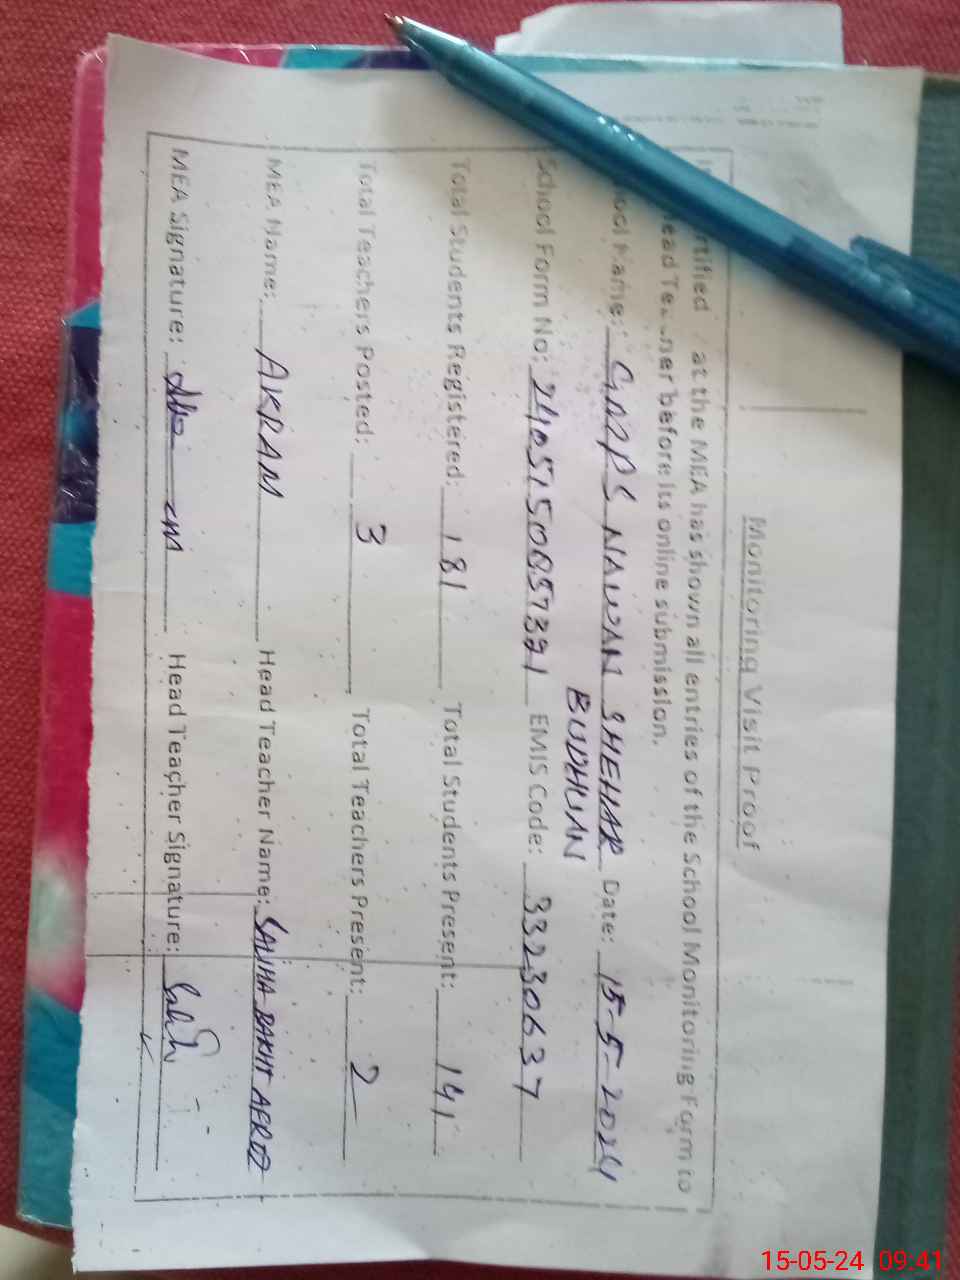 Monitoring Visit Proof
at the MEA has shown all entries of the School Monitoring Form to
before its online submission.
Name: GMMPS NAWAN SHEHAR Date: 15-5-2024
BUDHUAN
School Form No: EMIS Code: 33230637
Total Students Registered: 181 Total Students Present: 141
Total Teachers Posted: 3 Total Teachers Present: 2
MEA Name: AKRAM Head Teacher Name: BAKHT
MEA Signature: Head Teacher Signature:
15-05-24 09:41